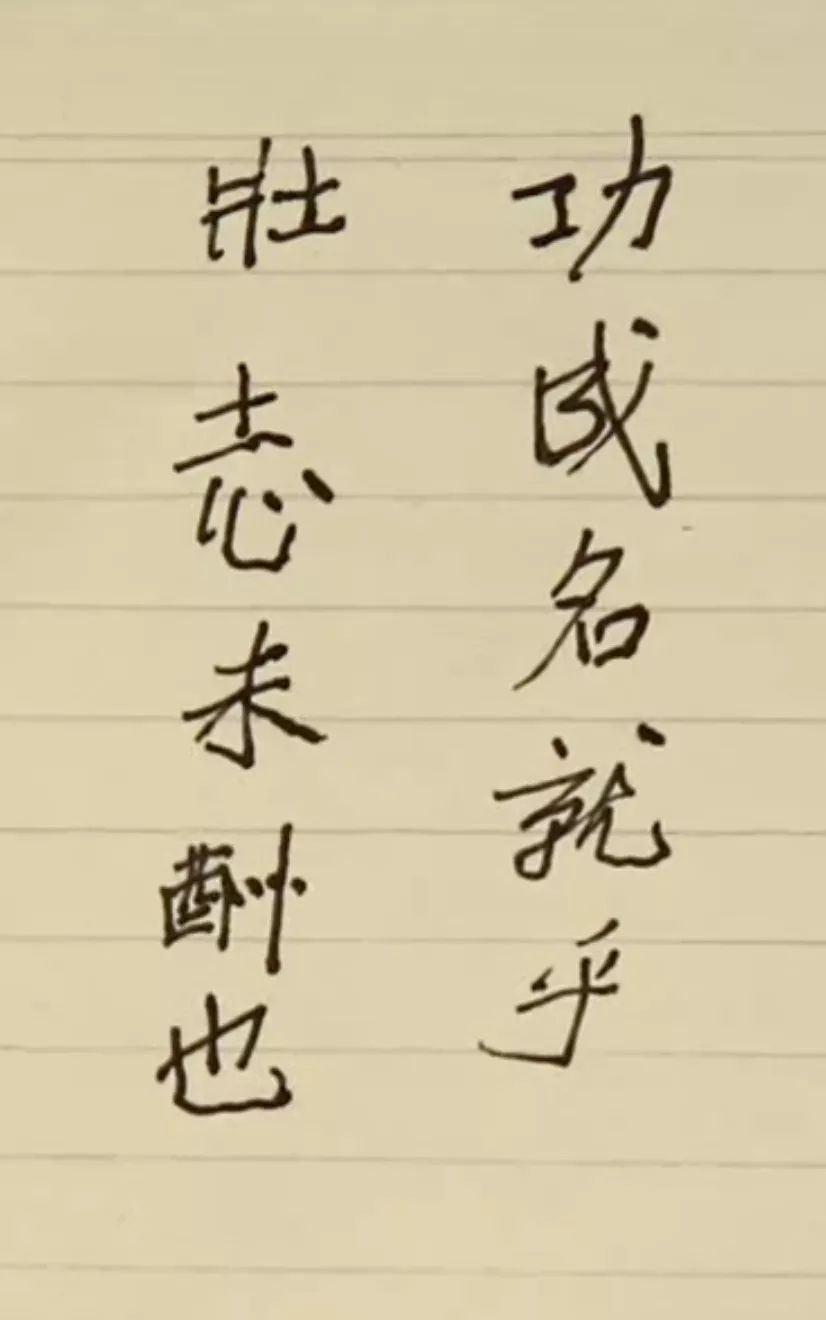 功成名就乎
壯志未酬也